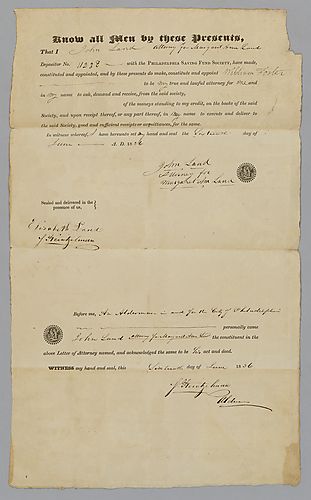 Know all Men by these Presents,
That I John Land Attorney for Margaret Ann Land
Depositor No. 11232 with the PHILADELPHIA SAVING FUND SOCIETY, have made,
constituted and appointed, and by these presents do make, constitute and appoint William Foster
to be my true and lawful attorney for me and
in my name to ask, demand and receive, from the said society,
of the moneys standing to my credit, on the books of the said
Society, and upon receipt thereof, or any part thereof, in my name to execute and deliver to
the said Society, good and sufficient receipts or acquittances, for the same.
In witness whereof, I have hereunto set my hand and seal the day of
June A. D. 1836
John Land
Attorney for
Margaret Ann Land
Sealed and delivered in the
presence of us,
Elizabeth Land
Before me, An Alderman in and for the City of Philadelphia
personally came
John Land Attorney for Margaret Ann Land the constituted in the
above Letter of Attorney named, and acknowledged the same to be his act and deed.
WITNESS my hand and seal, this day of June 1836
Alderman